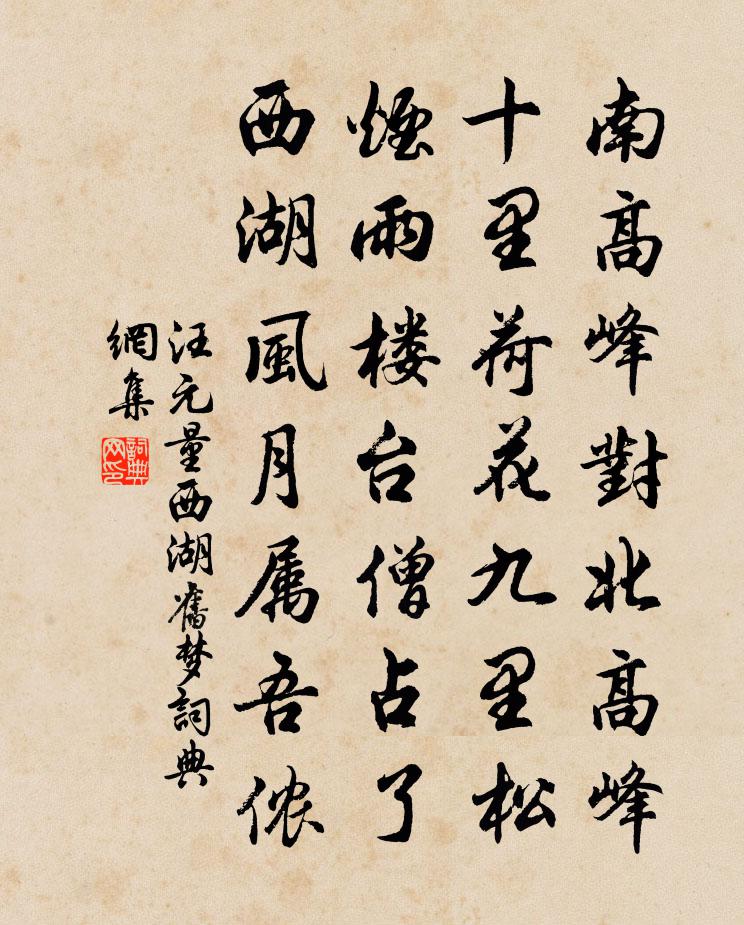 南高峰對北高峰
十里荷花九里松
煙雨楼台僧占了
西湖風月属吾侬
汪元量西湖舊梦詞典
網集
詞典网印